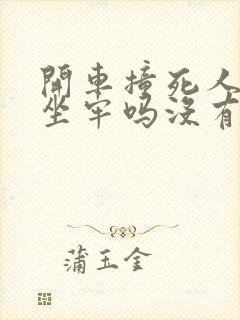 開車撞死人
坐牢吗沒有
蒲玉金